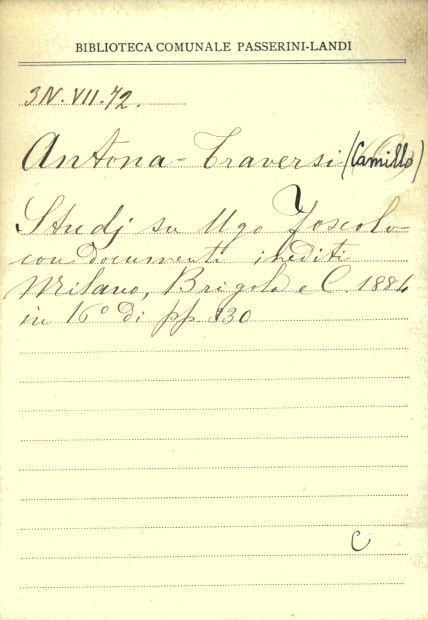 BIBLIOTECA COMUNALE PASSERINI-LANDI
3N.VII.72.
Antona-Traversi (Camillo)
Studj su Ugo Foscolo
con documenti inediti
Milano, Brigola e C. 1884
in 16° di pp 330
C